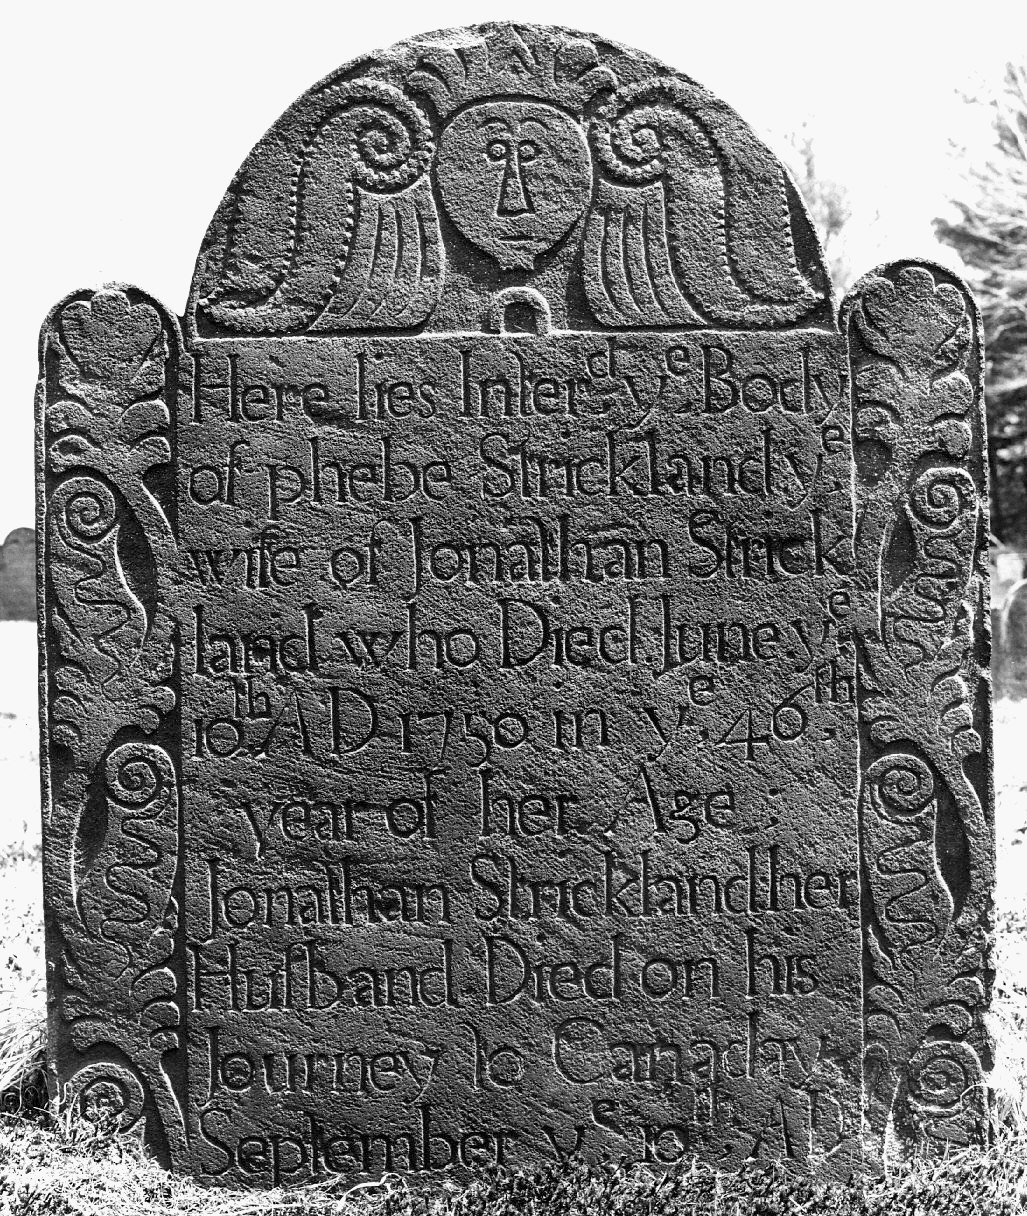 Here lies Inter.d yͤ Body
of phebe Strickland yͤ
wife of Jonathan Strick
land who Died June yͤ
10th AD 1750 in yͤ 46th
year of her Age :
Jonathan Strickland her
Husband Died on his
Journey to Canada yͤ
September yͤ 10th AD